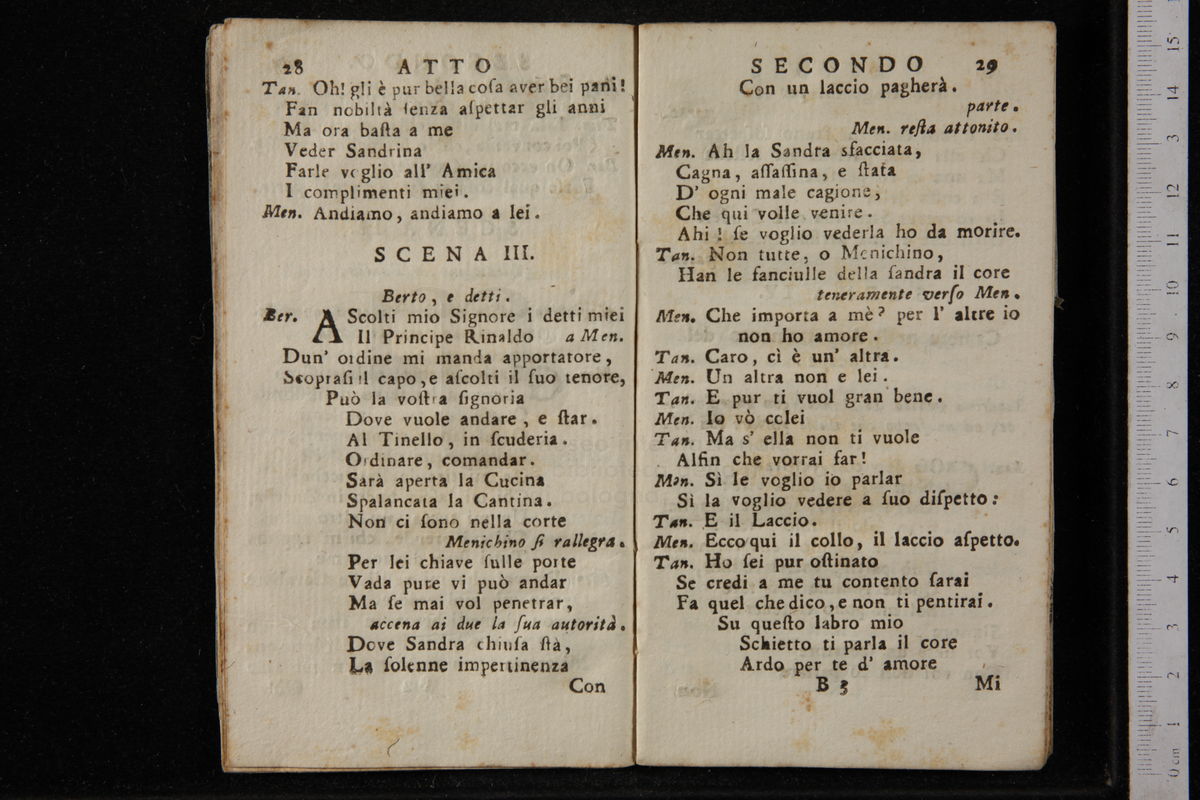 28 ATTO
Tan. Oh! gli è pur bella coſa aver bei pani!
Fan nobiltà ſenza aſpettar gli anni
Ma ora baſta a me
Veder Sandrina
Farle voglio all' Amica
I complimenti miei.
Men. Andiamo, andiamo a lei.
SCENA III.
Berto, e detti.
Ber. AScolti mio Signore i detti miei
Il Principe Rinaldo a Men.
Dun' ordine mi manda apportatore,
Scopraſi il capo, e aſcolti il ſuo tenore,
Può la voſtra ſignoria
Dove vuole andare, e ſtar.
Al Tinello, in ſcuderia.
Ordinare, comandar.
Sarà aperta la Cucina
Spalancata la Cantina.
Non ci ſono nella corte
Menichino ſi rallegra.
Per lei chiave ſulle porte
Vada pure vi può andar
Ma ſe mai vol penetrar,
accena ai due la ſua autorità.
Dove Sandra chiuſa ſtà,
La ſolenne impertinenza
Con
SECONDO 29
Con un laccio pagherà.
parte.
Men. reſta attonito.
Men. Ah la Sandra sfacciata,
Cagna, aſſaſſina, e ſtata
D' ogni male cagione,
Che qui volle venire.
Ahi! ſe voglio vederla ho da morire.
Tan. Non tutte, o Menichino,
Han le fanciulle della ſandra il core
teneramente verſo Men.
Men. Che importa a mè? per l' altre io
non ho amore.
Tan. Caro, cì è un' altra.
Men. Un altra non e lei.
Tan. E pur ti vuol gran bene.
Men. Io vò colei
Tan. Ma s' ella non ti vuole
Alfin che vorrai far!
Men. Sì le voglio io parlar
Sì la voglio vedere a ſuo diſpetto:
Tan. E il Laccio.
Men. Ecco qui il collo, il laccio aſpetto.
Tan. Ho ſei pur oſtinato
Se credi a me tu contento ſarai
Fa quel che dico, e non ti pentirai.
Su queſto labro mio
Schietto ti parla il core
Ardo per te d' amore
B 3 Mi
0 cm 1 2 3 4 5 6 7 8 9 10 11 12 13 14 15